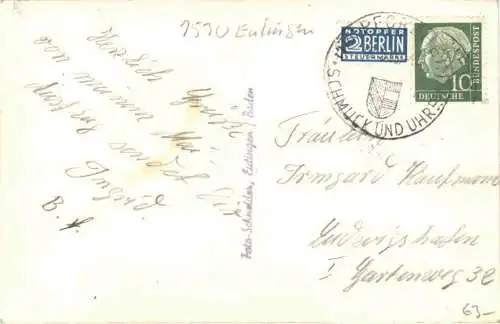 7590 Eutingen
Herzliche Grüße
von meinem Mai
ausflug sendet Dir
Ingrid
B. H.
Foto-Schneider, Eutingen / Baden
NOTOPFER
2 BERLIN
STEUERMARKE
SCHMUCK UND UHR
DEUTSCHE
BUNDESPOST
10
Fräulein
Irmgard Kaufmann
Ludwigshafen
I Gartenweg 32
63-